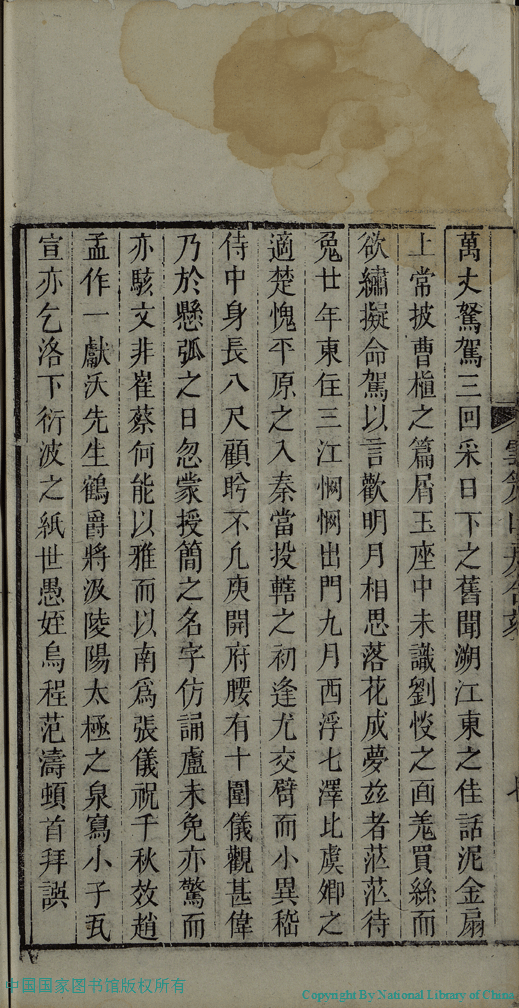 萬丈駕駕三回采日下之舊聞溯江東之佳話泥金扇
上常披曹植之篇屑玉座中未識劉惔之面羗買絲而
欲繡擬命駕以言歡明月相思落花成夢玆者茫茫待
兔廿年東住三江惘惘出門九月西浮七澤比虞卿之
適楚愧平原之入秦當投轄之初逢尤交臂而小異嵇
侍中身長八尺顧盻不凢庾開府腰有十圍儀觀甚偉
乃於懸弧之日忽蒙授簡之名字仿誦盧未免亦驚而
亦駭文非崔蔡何能以雅而以南爲張儀祝千秋效趙
孟作一獻沃先生鶴爵將汲陵陽太極之泉寫小子瓦
宣亦乞洛下衍波之紙世愚姪烏程范濤頓首拜譔
中国国家图书馆版权所有
Copyright By National Library of China